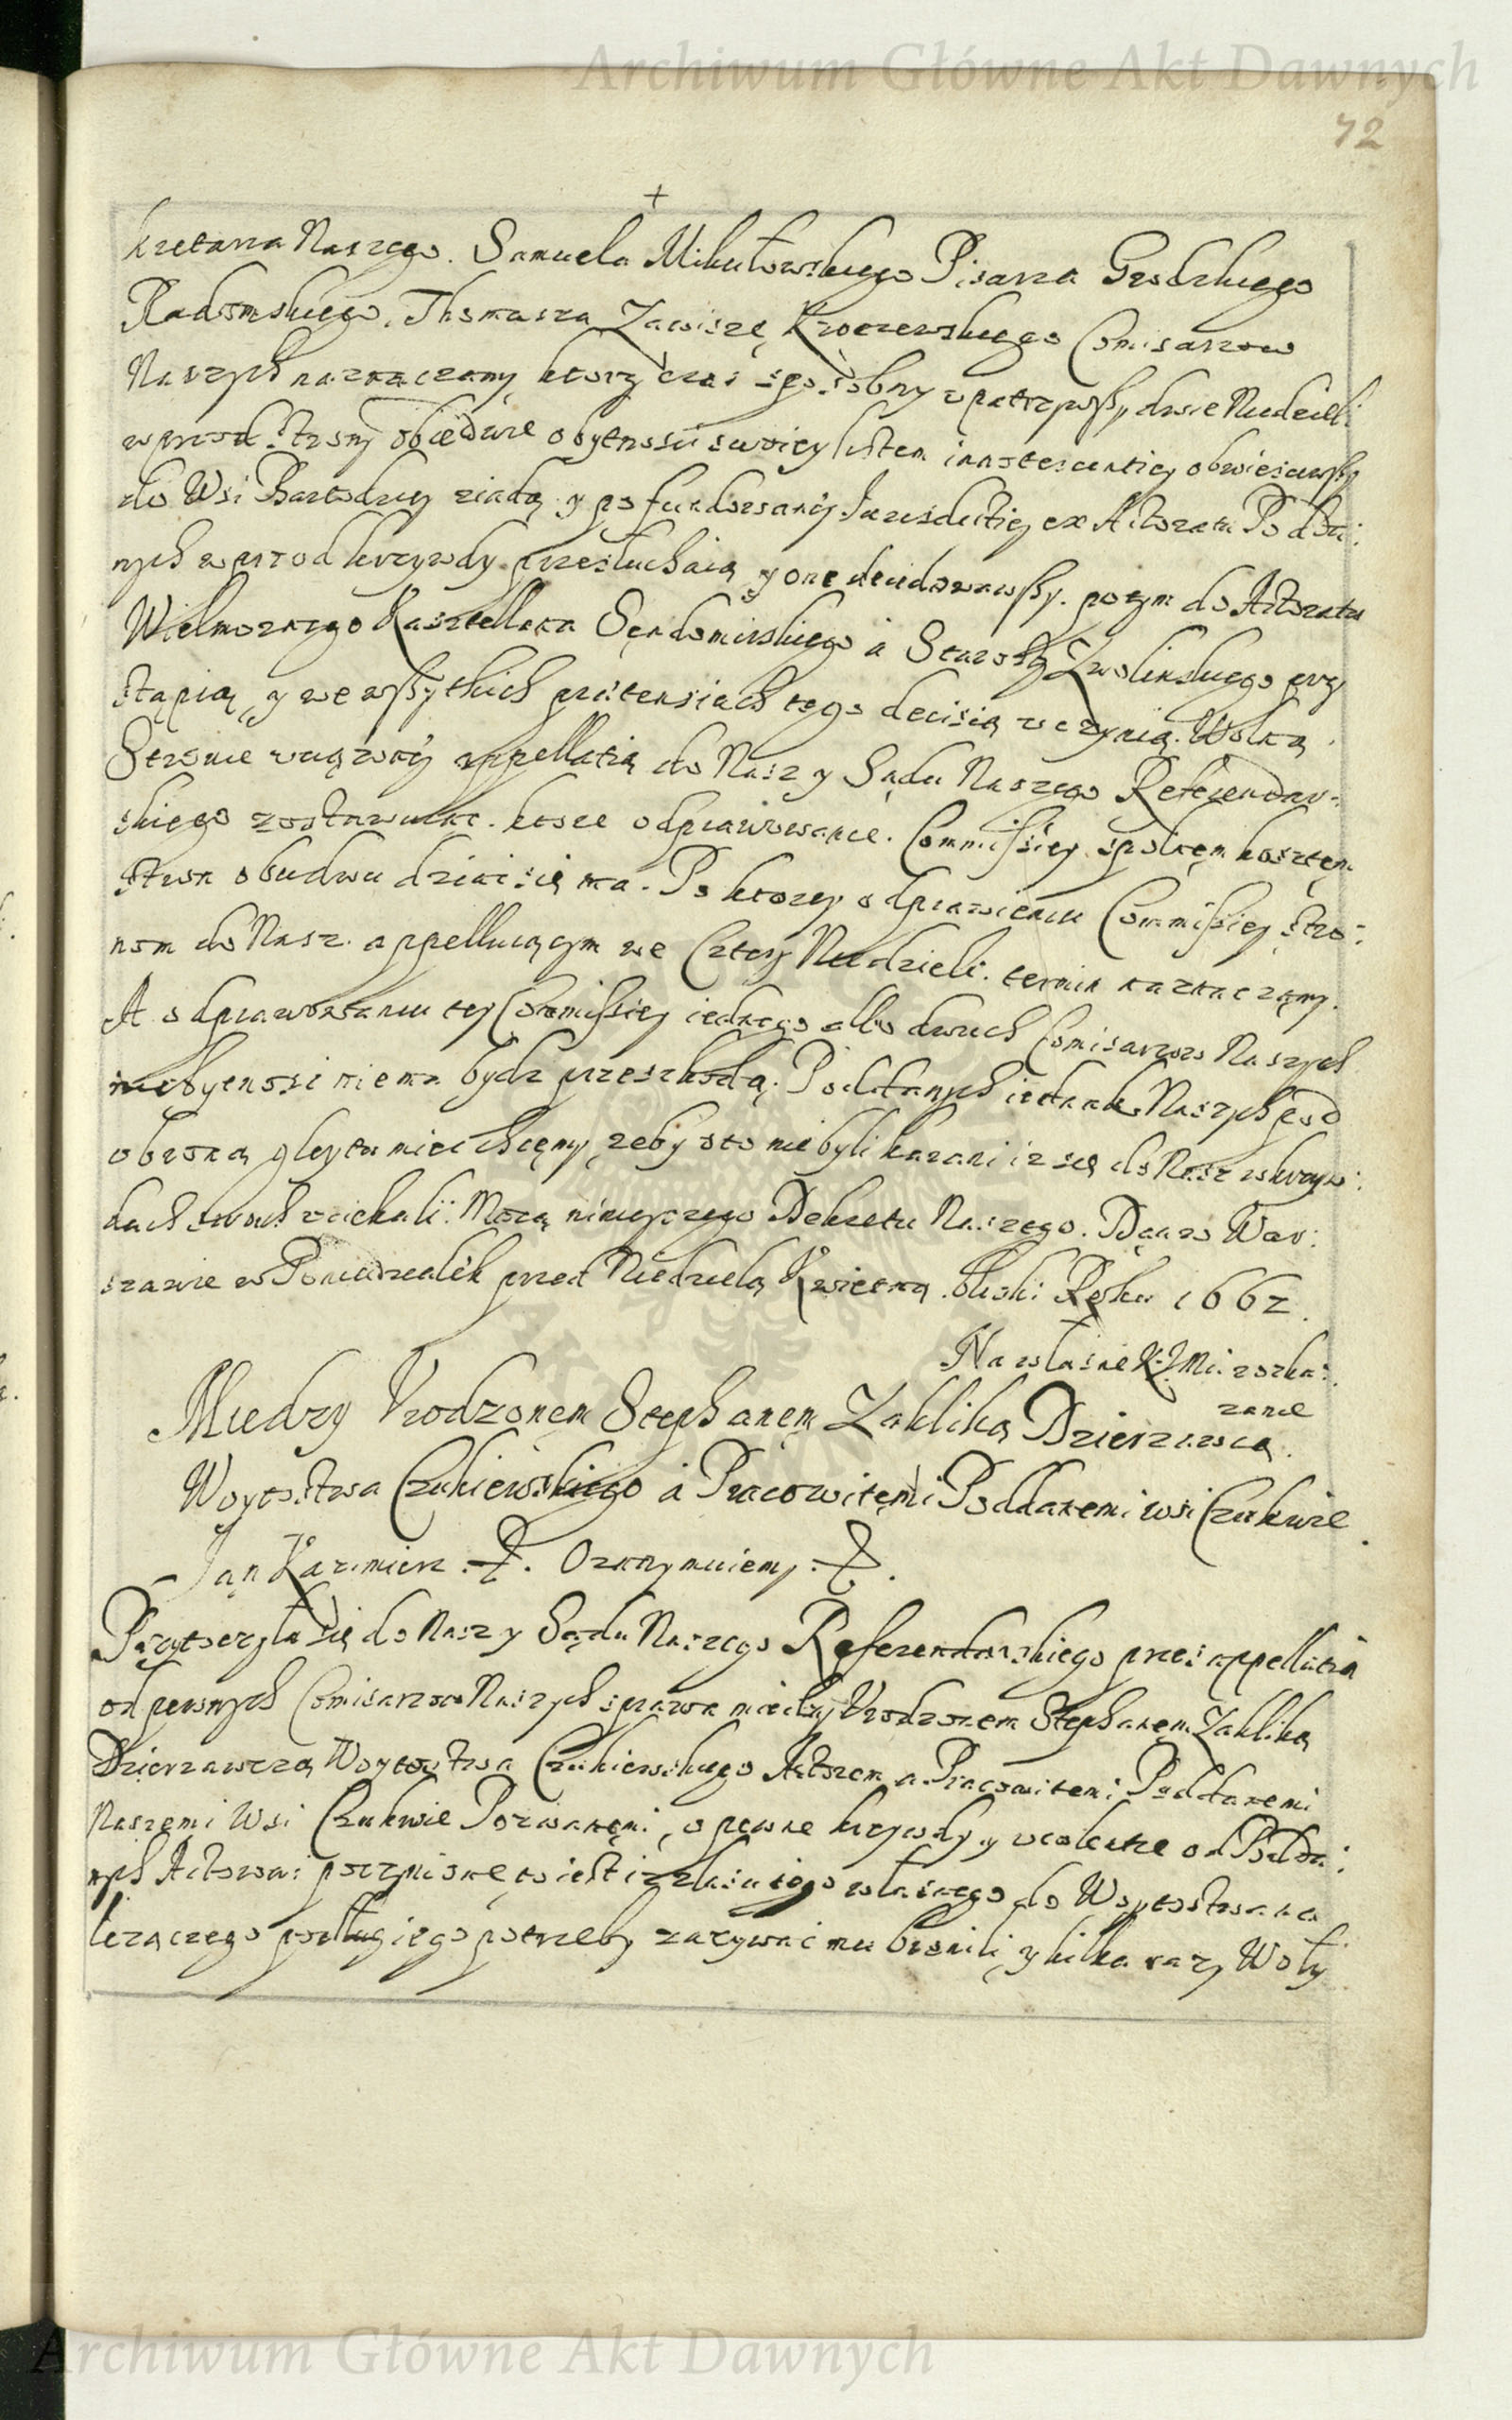 Archiwum Główne Akt Dawnych
72
kretarza Naszego. Samuela Mikułowskiego Pisarza Grodzkiego
Radomskiego, Thomasza Zawiszę Kroczewskiego Comisarzow
Naszych naznaczamy ktorzy czas sposobny upatrzywszy dwie Niedzieli
wprzod Strony obiedwie o bytnosci swoiey listem innotescentiey obwiesciwszy
do Wsi Bartodziey ziadą y po fundowaney Iurisdictiey ex Actoratu Podda:
nych wprzod krzywdy przesłuchaią y one decidowawszy. potym do Actoratu
Wielmoznego Kasztellana Sendomirskiego a Starosty Zwolinskiego przy
stąpią, y we wszytkich praetensiach tego decisią uczynią. Wolną
Stronie uciązoney appellatią do Nasz y Sądu Naszego Referendar:
skiego zostawuiąc. ktore odprawowanie. Commissiey społnem kosztem
Stron obudwu dziać się ma. Po ktorey odprawieniu Commissiey Stro:
nom do Nasz. appelluiącym we Cztery Niedzieli. termin naznaczamy.
A odprawowaniu tey Commissiey iednego albo dwuch Comisarzow Naszych
niebytnosc niema bydz przeszkodą. Poddanych iednak Naszych pod
obroną gleytu miec chcęmy, zeby oto niebyli karani iz się do Nasz wkrzyw:
dach swoich uciekali: Mocą ninieyszego Dekretu Naszego. Dąn w War:
szawie w Poniedziałek przed Niedzielą Kwietną bliski Roku 1662.
Na własne K. J. Mci. roska:
zanie
Miedzy Vrodzonem Stephanem Zakliką Dzierzawcą.
Woytostwa Czukiewskiego a Pracowitęmi Poddanemi wsi Czukwie.
Ian Kazimierz. Oznaymuiemy.
Przytoczyła się do Nasz y Sądu Naszego Referendarskiego przes appellatią
od pewnych Comisarzow Naszych sprawa miedzy Vrodzonem Stephanem Zakliką
Dzierzawczą Woytostwa Czukiewskiego Actorem a Pracowitemi Poddanemi
Naszemi Wsi Czukwie Pozwanęmi, o pewne krzywdy y violentie od Podda:
nych Actorowi poczynione to iest iz lasu iego własnego do Woytostwa na
lezączego podług iego potrzeby zazywac mu bronili, y kilka razy Woły
Archiwum Główne Akt Dawnych